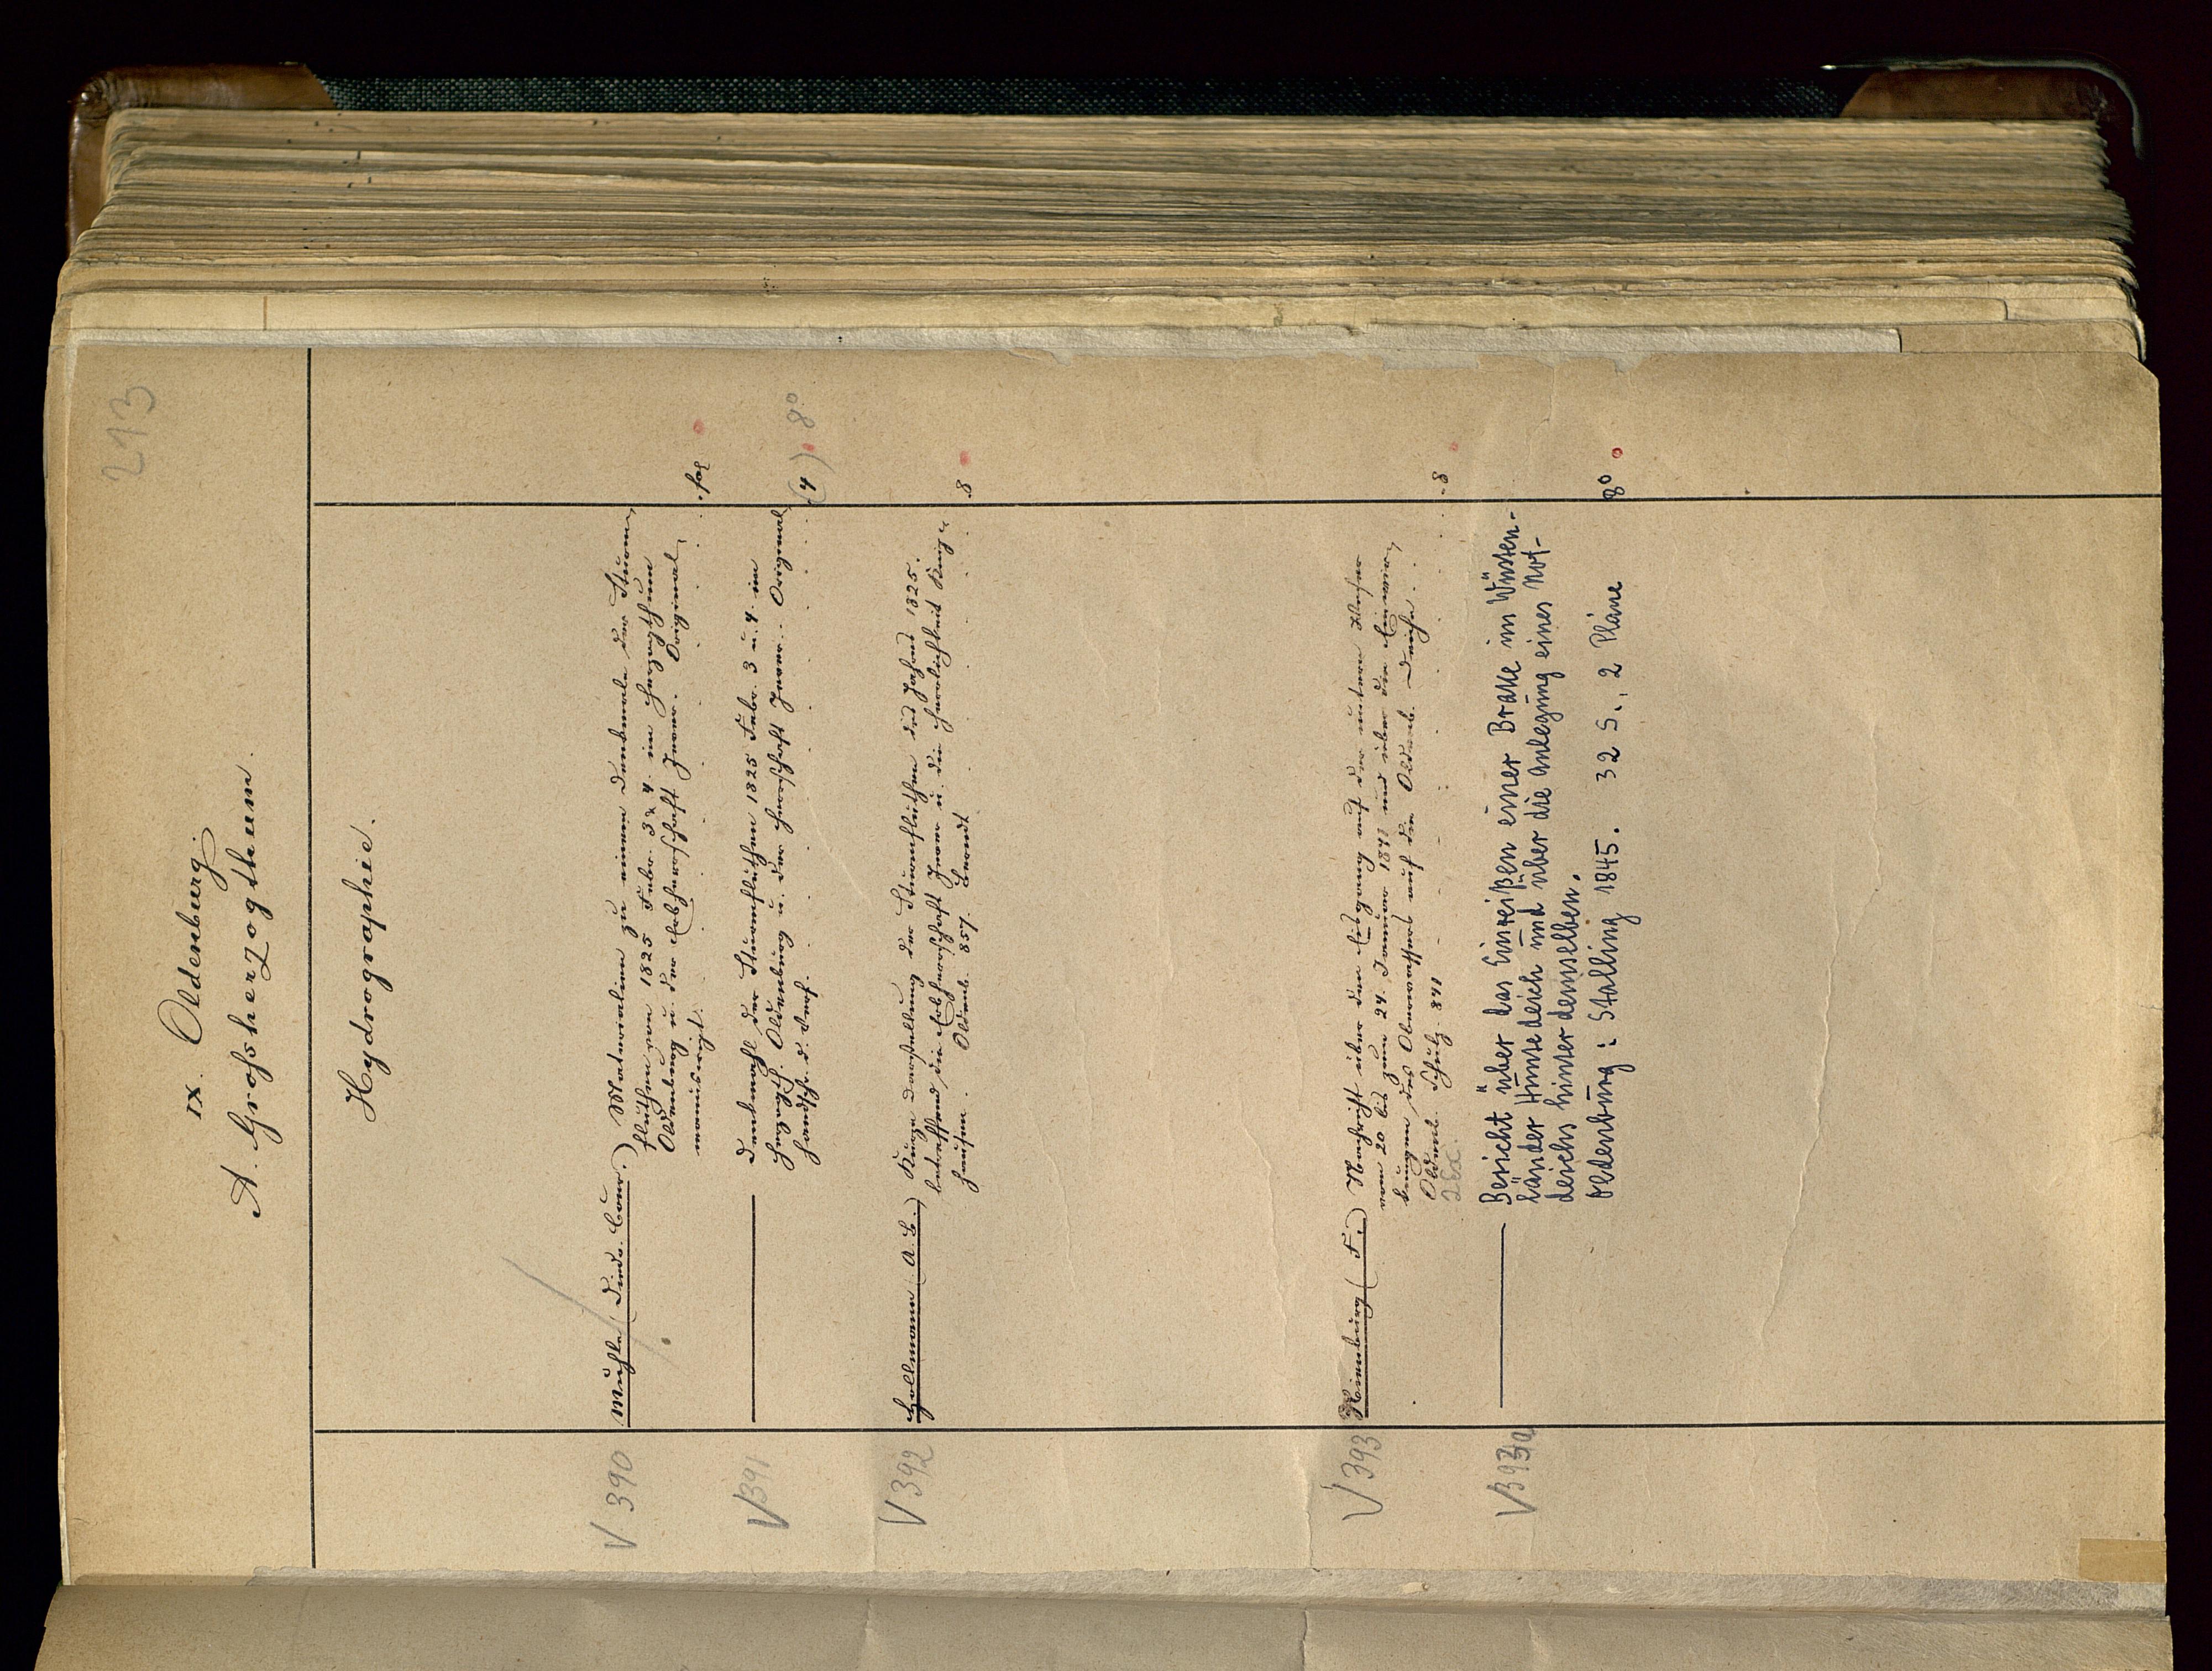 213
IX. Oldenburg.
A. Grossherzogthum.
Hydrographie.
V 390 Muhle (Diedr. Conr.) Materialien zu einem Denkmale der Sturm-
fluthen von 1825 Febr. 3 & 4. im Herzogthum
Oldenburg u. der Erbherrschaft Jever. Original,
manuscript. fol
V 391 — Denkmahl der Sturmfluthen 1825 Febr. 3 u. 4. im
Herzogth. Oldenburg u. der Herrschaft Jever. Original
Handschr. d. Verf. (4) 8°
V 392 Hollmann (A. L.) Kurze Darstellung der Sturmfluthen des Jahres 1825.
betreffend die Erbherrschaft Jever u. die Herrlichkeit Knip-
hausen. Oldenb. 857. Berndt 8
V 393 (F.) Nachricht über den Eisgang auf der untern Weser
vom 20 bis zum 24. Januar 1841 und über die Einwir-
kungen des Oberwassers auf die Oldenb. Deiche.
Oldenb. Schulz. 841 8
2 Ex.
V 393a — Bericht über das Einreißen einer Brake im Wüsten-
länder Huntedeich und über die Anlegung eines Not-
deichs hinter demselben.
Oldenburg: Stalling 1845. 32 S., 2 Pläne 8°